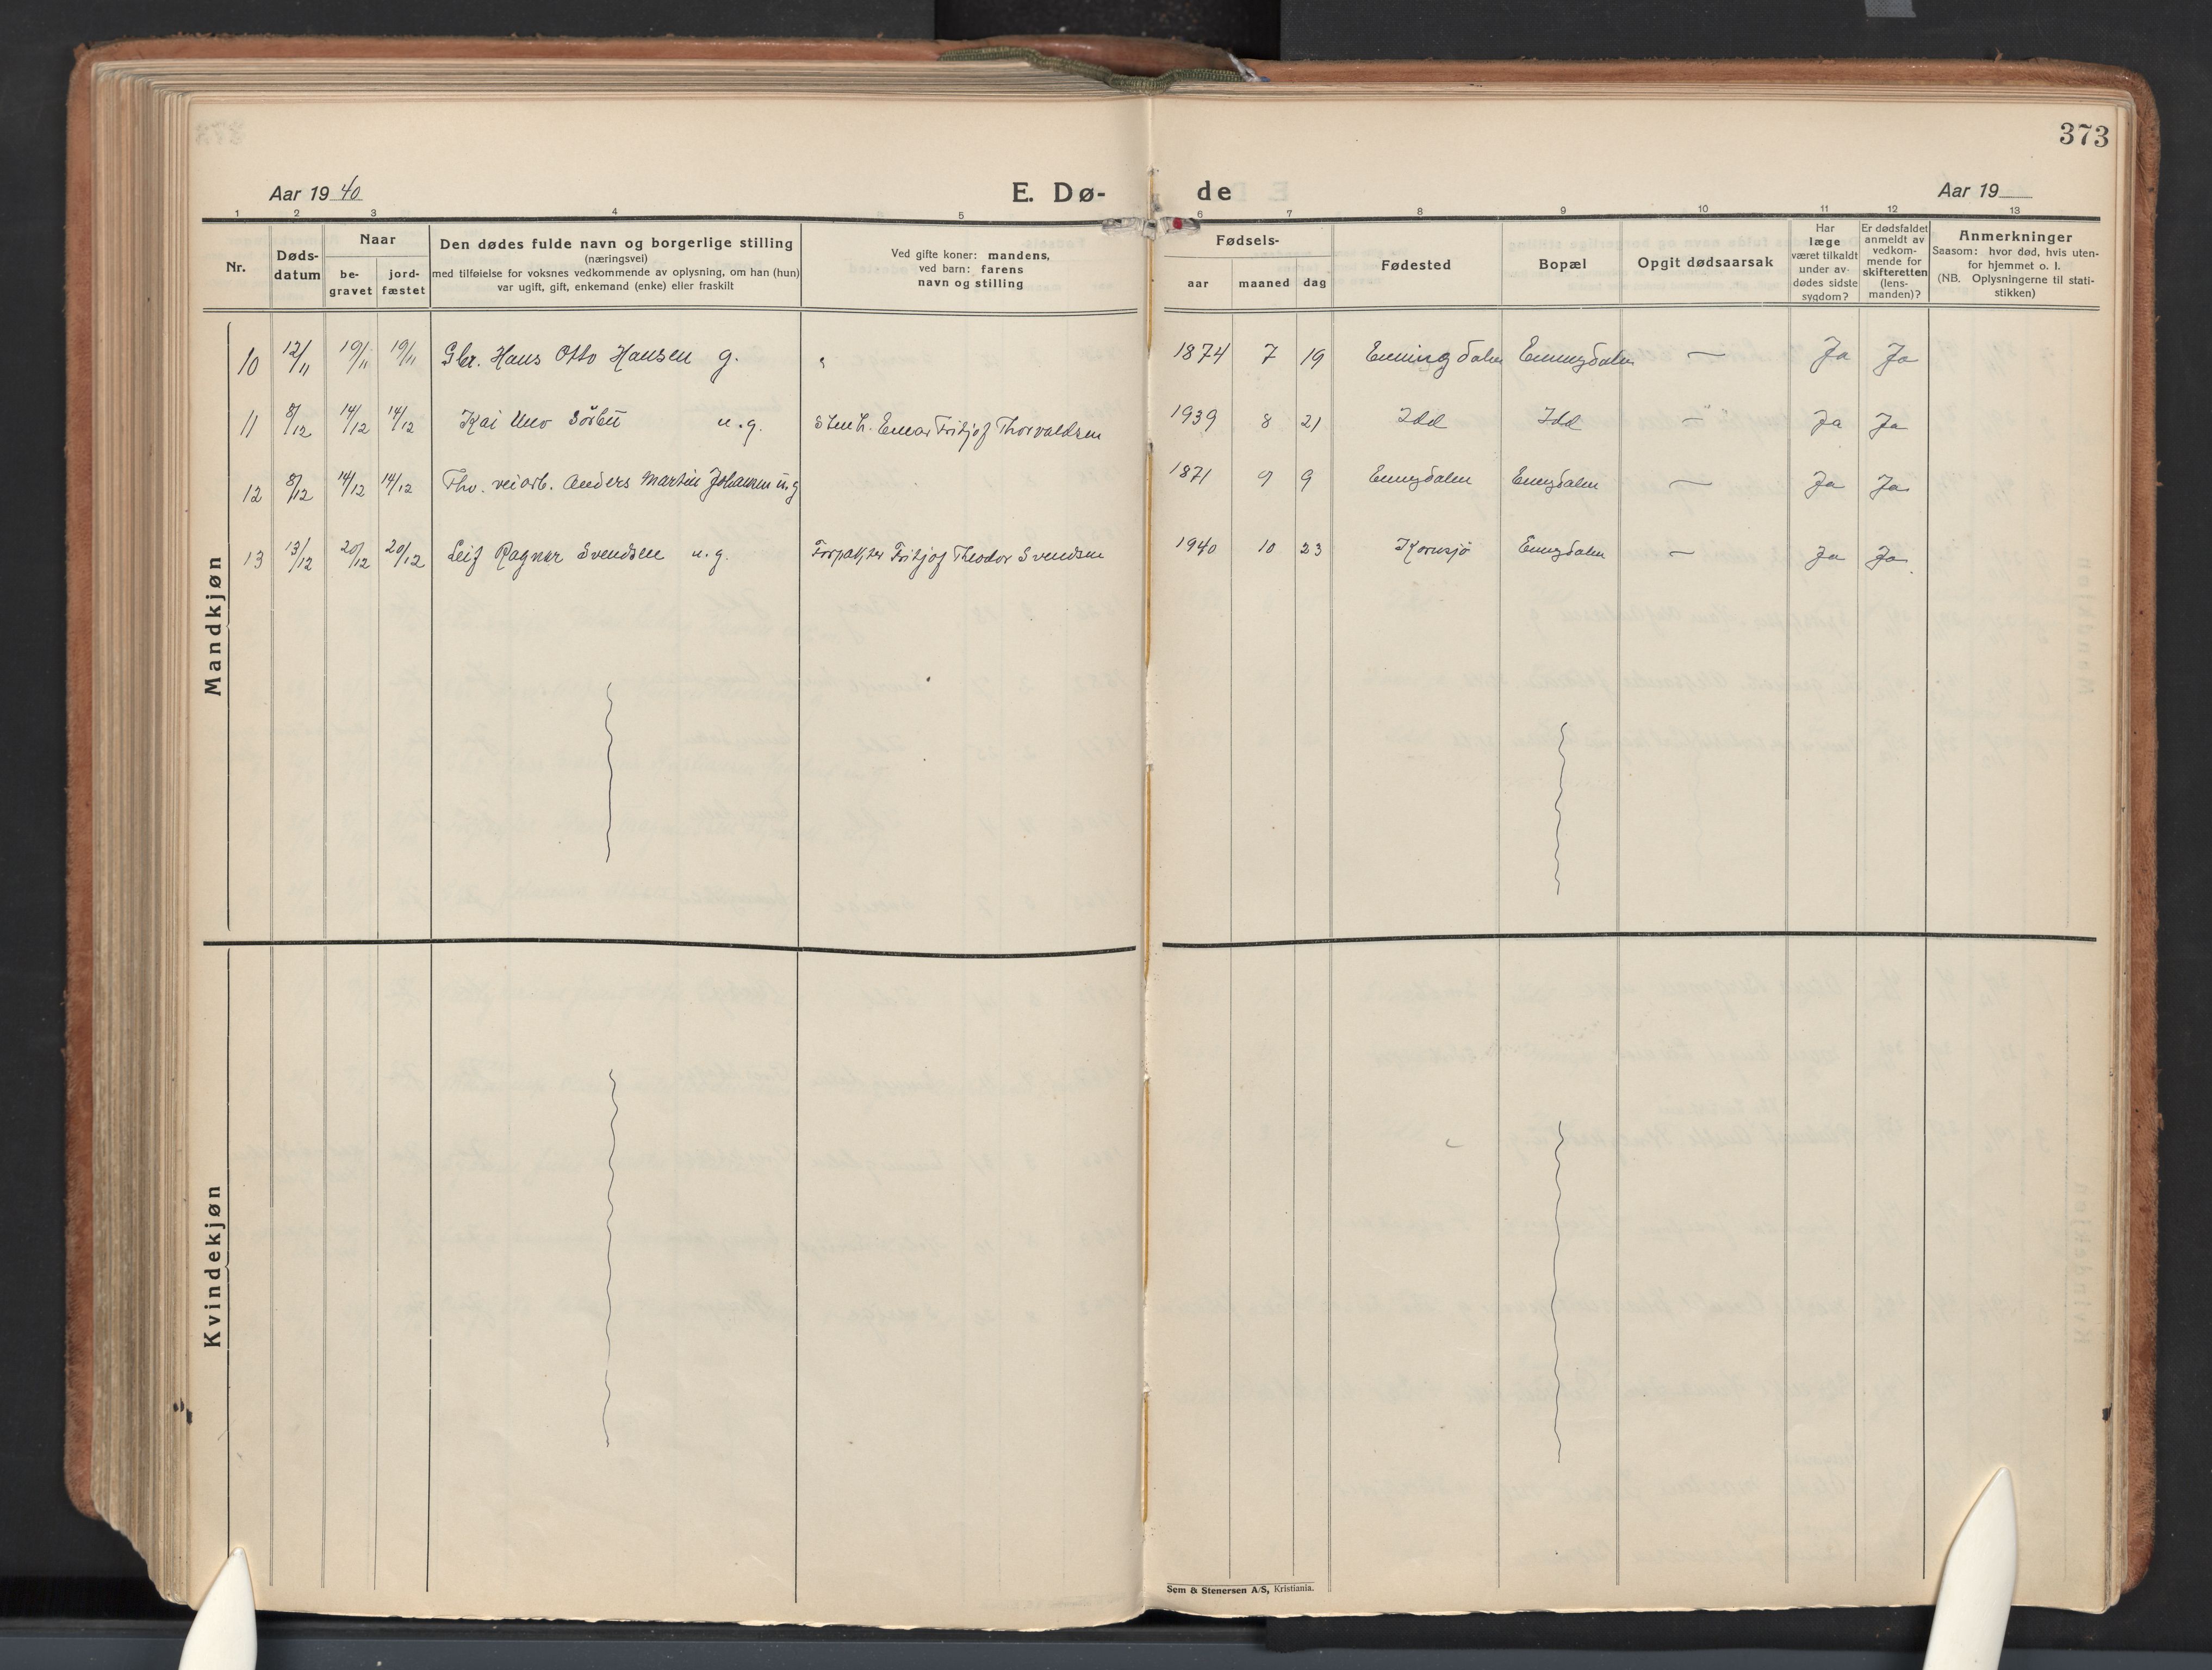 373
Aar 19 40
E. Dø-
de
Aar 19
1 2 3 4 5 6 7 8 9 10 11 12 13
Nr.
Døds-
datum
Naar
be-
gravet
jord-
fæstet
Den dødes fulde navn og borgerlige stilling
(næringsvei)
med tilføielse for voksnes vedkommende av oplysning, om han (hun)
var ugift, gift, enkemand (enke) eller fraskilt
Ved gifte koner: mandens,
ved barn: farens
navn og stilling
Fødsels-
aar maaned dag
Fødested
Bopæl
Opgit dødsaarsak
Har
læge
været tilkaldt
under av-
dødes sidste
sygdom?
Er dødsfaldet
anmeldt av
vedkom-
mende for
skifteretten
(lens-
manden)?
Anmerkninger
Saasom: hvor død, hvis uten-
for hjemmet o. l.
(NB. Oplysningerne til stati-
stikken)
Mandkjøn
10 12/11 19/11 19/11 Gbr. Hans Otto Hansen g. " 1874 7 19 Enningdalen Enningdalen — Ja Ja
11 8/12 14/12 14/12 Kai Uno u.g. Stenh. Einar Fritjof Thorvaldsen 1939 8 21 Idd Idd —"— Ja Ja
12 8/12 14/12 14/12 Fhv. veiarb. Anders Martin Johannesen u.g 1871 9 9 Enningdalen Enningdalen — Ja Ja
13 13/12 20/12 20/12 Leif Ragnar Svendsen u.g. Forpakter Fritjof Theodor Svendsen 1940 10 23 Kornsjø Enningdalen — Ja Ja.
Kvindekjøn
Sem & Stenersen A/S, Kristiania.